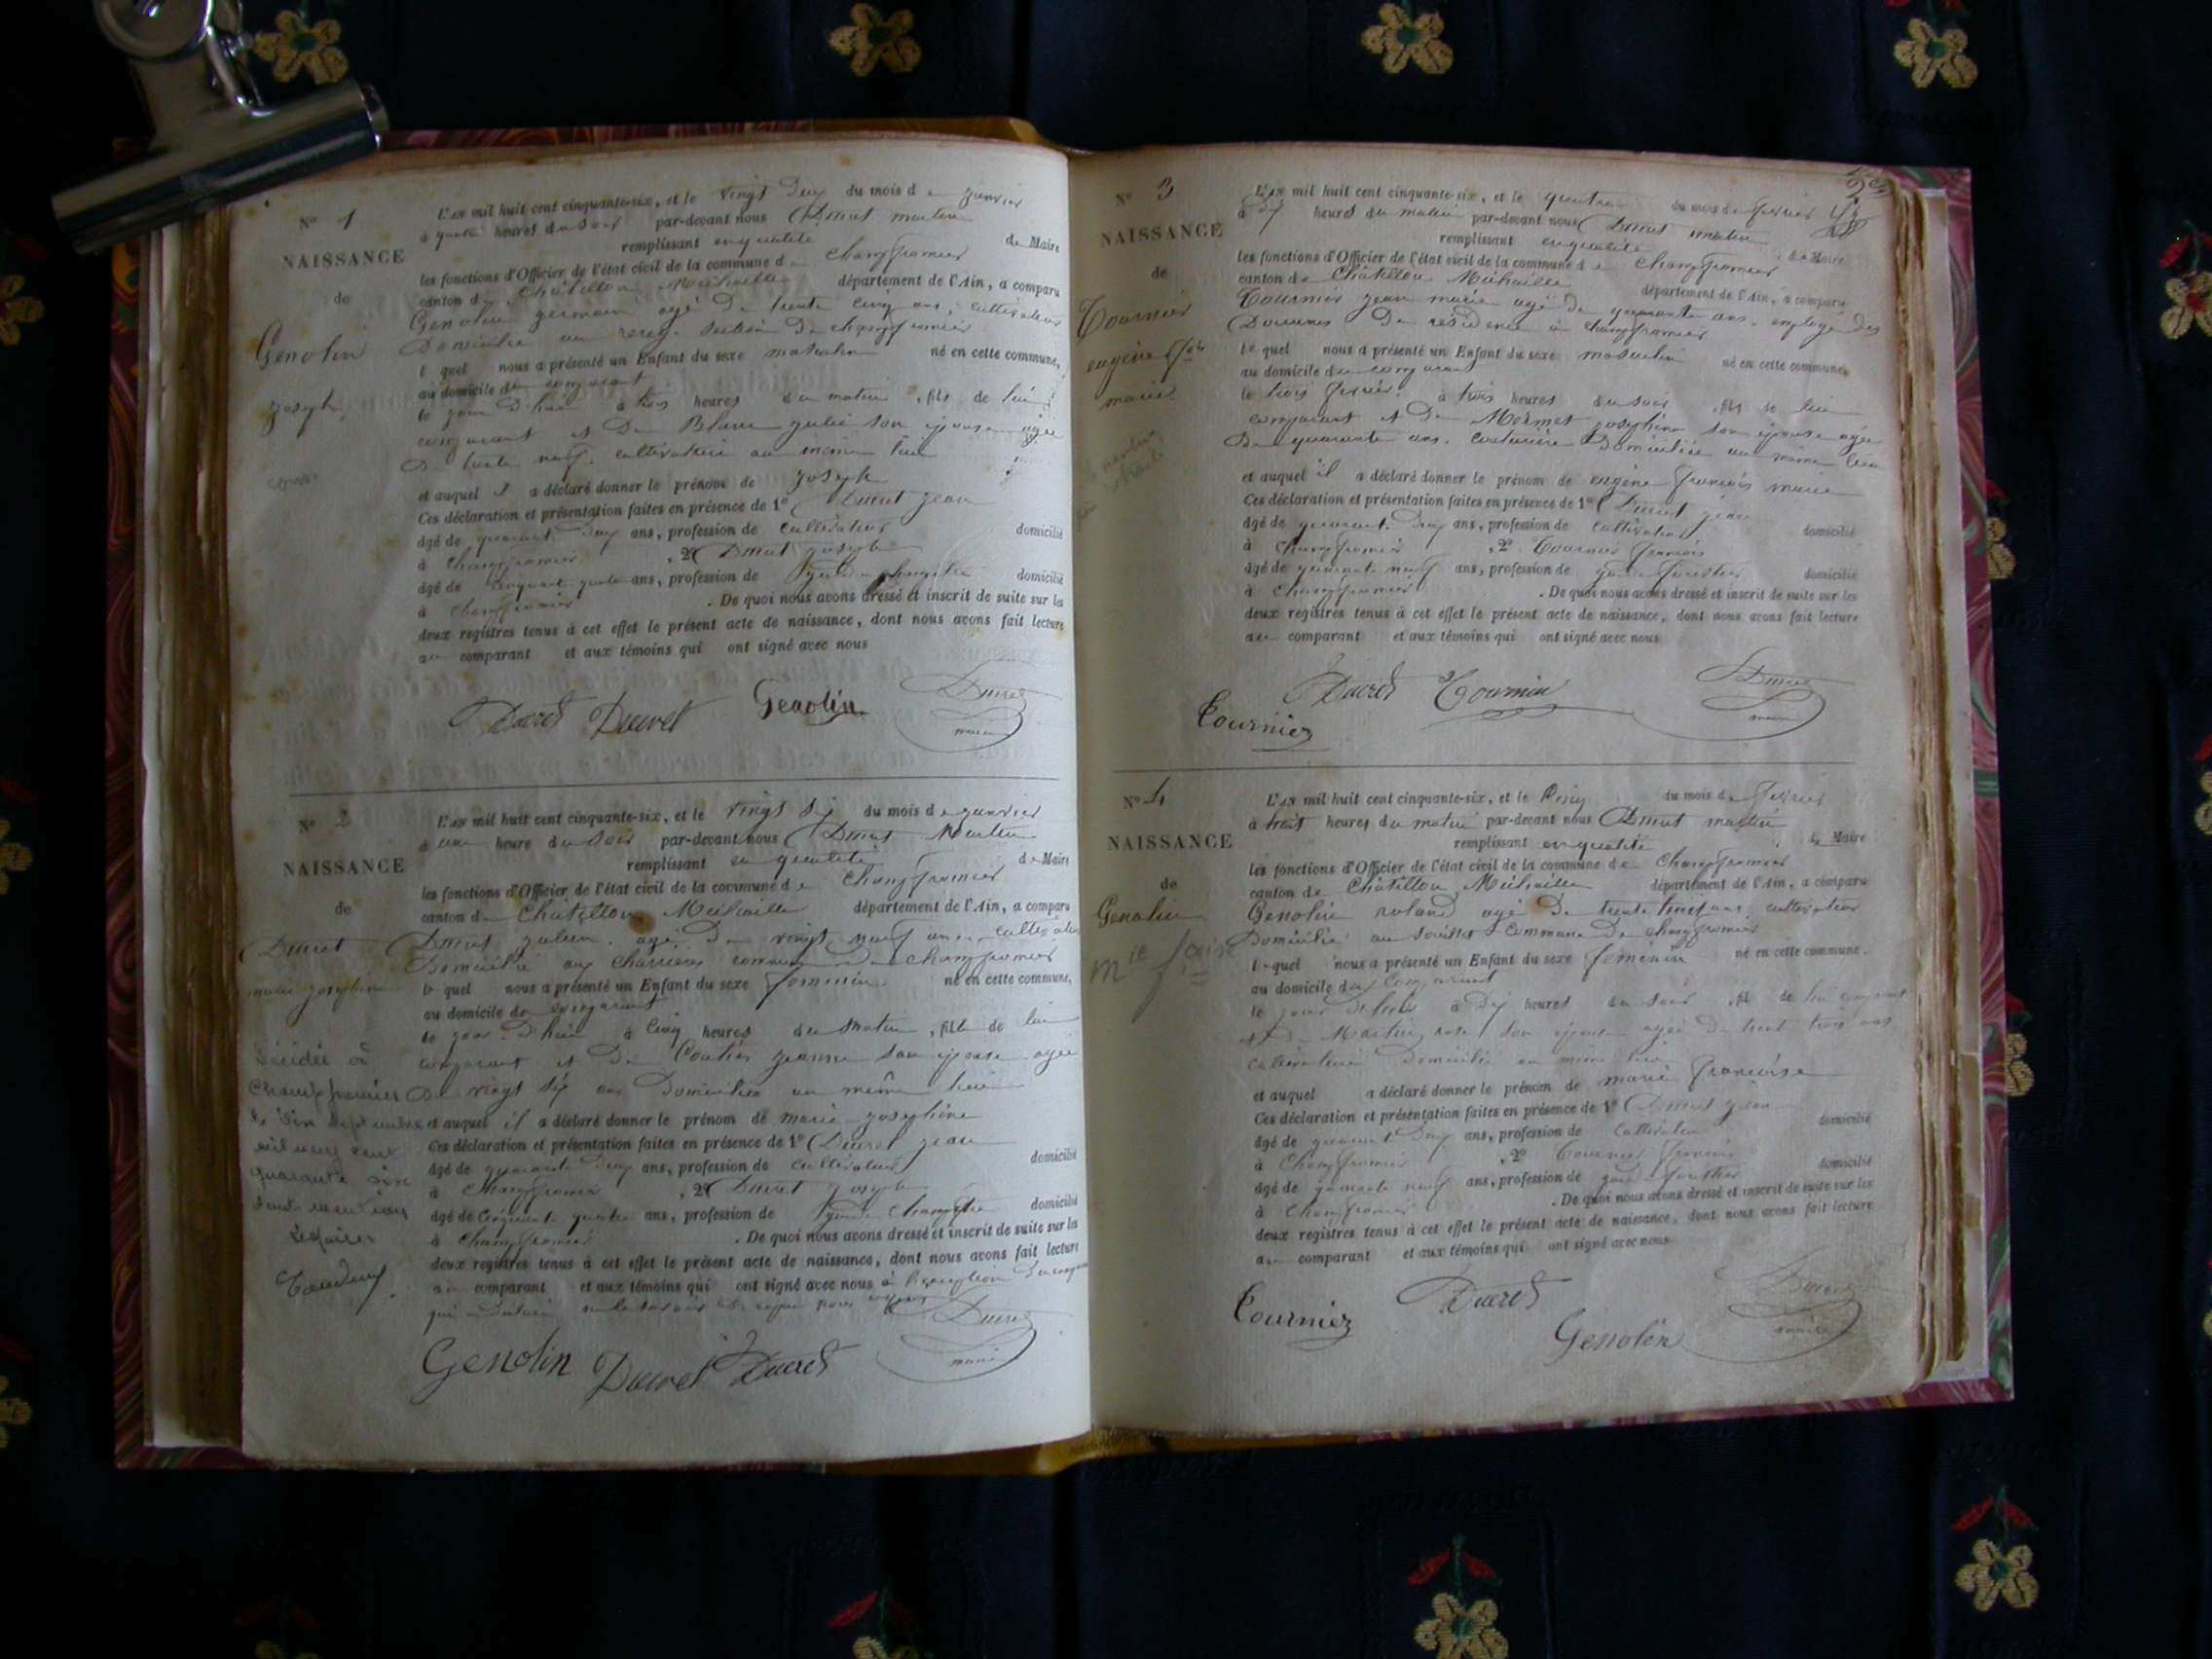 Nº 1
NAISSANCE
de
Genolin
Joseph
L'An mil huit cent cinquante-six, et le vingt deux du mois de janvier
à quatre heures du soir par-devant nous Ducret Martin
remplissant en qualité de Maire
les fonctions d'Officier de l'état civil de la commune de Champfromier
canton de Châtillon Michaille département de l'Ain, a comparu
Genolin germain agé de trente cinq ans, cultivateur
Domicilié au section de champfromier
lequel nous a présenté un Enfant du sexe masculin né en cette commune,
au domicile du comparant
le jour d'hui à trois heures du matin, fils de lui
comparant et de Blanc julie son épouse agée
de trente neuf, cultivatrice au même lieu
et auquel il a déclaré donner le prénom de joseph
Ces déclaration et présentation faites en présence de 1º Ducret jean
âgé de quarante deux ans, profession de cultivateur domicilié
à Champfromier, 2º Ducret joseph
âgé de cinquante quatre ans, profession de garde champêtre domicilié
à Champfromier. De quoi nous avons dressé et inscrit de suite sur les
deux registres tenus à cet effet le présent acte de naissance, dont nous avons fait lecture
au comparant et aux témoins qui ont signé avec nous
Ducret Ducret Genolin Ducret
maire
Nº 2
NAISSANCE
de
Ducret
marie josephine
Décédée à
Champfromier
le dix septembre
mil neuf cent
quarante
L'An mil huit cent cinquante-six, et le vingt six du mois de janvier
à une heure du soir par-devant nous Ducret Martin
remplissant en qualité de Maire
les fonctions d'Officier de l'état civil de la commune de Champfromier
canton de Châtillon Michaille département de l'Ain, a comparu
Ducret julien, agé de vingt neuf ans, cultivateur
Domicilié aux commune de champfromier
lequel nous a présenté un Enfant du sexe féminin né en cette commune,
au domicile du comparant
le jour d'hui à cinq heures du matin, fille de lui
comparant et de Coutier jeanne son épouse agée
de vingt six ans Domiciliée au même lieu
et auquel il a déclaré donner le prénom de marie josephine
Ces déclaration et présentation faites en présence de 1º Ducret jean
âgé de quarante deux ans, profession de cultivateur domicilié
à Champfromier, 2º Ducret joseph
âgé de cinquante quatre ans, profession de garde champêtre domicilié
à Champfromier. De quoi nous avons dressé et inscrit de suite sur les
deux registres tenus à cet effet le présent acte de naissance, dont nous avons fait lecture
au comparant et aux témoins qui ont signé avec nous à l'exception du
Genolin Ducret Ducret Ducret
maire
Nº 3
NAISSANCE
de
Tournier
eugène
marie
L'An mil huit cent cinquante-six, et le quatre du mois de février
à heures du matin par-devant nous Ducret martin
remplissant en qualité de Maire
les fonctions d'Officier de l'état civil de la commune de Champfromier
canton de Châtillon Michaille département de l'Ain, a comparu
Tournier jean marie agé de quarante ans, employé des
Douanes de résidence à Champfromier
lequel nous a présenté un Enfant du sexe masculin né en cette commune,
au domicile du comparant
le trois février à trois heures du soir, fils de lui
comparant et de Mermet josephine son épouse agée
de quarante ans, couturière Domiciliée au même lieu
et auquel il a déclaré donner le prénom de eugène françois marie
Ces déclaration et présentation faites en présence de 1º Ducret jean
âgé de quarante deux ans, profession de cultivateur domicilié
à Champfromier, 2º Tournier françois
âgé de quarante neuf ans, profession de garde forestier domicilié
à Champfromier. De quoi nous avons dressé et inscrit de suite sur les
deux registres tenus à cet effet le présent acte de naissance, dont nous avons fait lecture
au comparant et aux témoins qui ont signé avec nous
Ducret Tournier Ducret
Tournier maire
Nº 4
NAISSANCE
de
Genolin
Mie fcoise
L'An mil huit cent cinquante-six, et le cinq du mois de février
à huit heures du matin par-devant nous Ducret martin
remplissant en qualité de Maire
les fonctions d'Officier de l'état civil de la commune de Champfromier
canton de Châtillon Michaille département de l'Ain, a comparu
Genolin roland agé de trente huit ans, cultivateur
Domicilié au commune de champfromier
lequel nous a présenté un Enfant du sexe féminin né en cette commune,
au domicile du comparant
le jour à dix heures du soir, fil de lui comparant
et de Martin rose son épouse agée de trente trois ans
cultivatrice domiciliée au même lieu
et auquel a déclaré donner le prénom de marie françoise
Ces déclaration et présentation faites en présence de 1º Ducret jean
âgé de quarante deux ans, profession de cultivateur domicilié
à Champfromier, 2º Tournier françois
âgé de quarante neuf ans, profession de garde forestier domicilié
à Champfromier. De quoi nous avons dressé et inscrit de suite sur les
deux registres tenus à cet effet le présent acte de naissance, dont nous avons fait lecture
au comparant et aux témoins qui ont signé avec nous
Tournier Ducret Ducret
Genolin maire